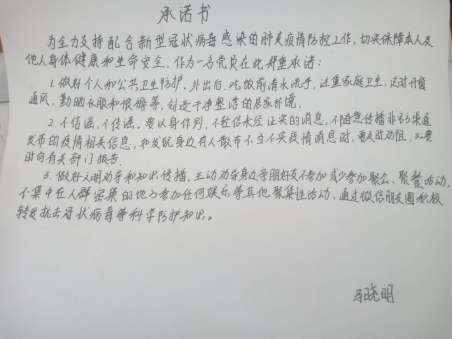 承诺书
为全力支持配合新型冠状病毒感染的肺炎疫情防控工作,切实保障本人及
他人身体健康和生命安全,作为一名党员在此郑重承诺:
1.做好个人和公共卫生防护。外出后、吃饭前清水洗手,注重家庭卫生,定时开窗
通风,勤晒衣服和被褥等,创造干净整洁的居家环境。
2.不信谣,不传谣。要以身作则,不轻信未经证实的消息,不随意传播非官方渠道
发布的疫情相关信息,如发现身边有人散布不当不实疫情消息时,要及时劝阻,必要
时向有关部门报告。
3.做好文明劝导和知识传播。主动劝导身边亲朋好友不参加或少参加聚会、聚餐活动,
不集中在人群密集的地方参加任何娱乐等其他聚集性活动,通过微信朋友圈积极
转发抗击冠状病毒等科学防护知识。
马晓明